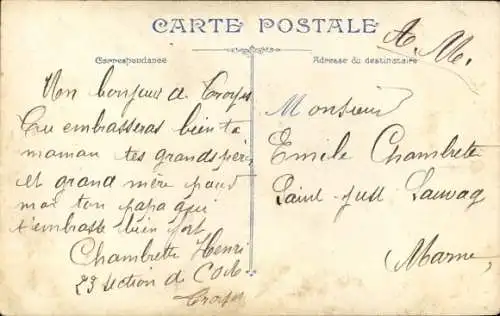 CARTE POSTALE
A. M.
Correspondance
Adresse du destinataire
Un bonjour de Troyes
Tu embrasseras bien ta
maman tes grands pères
et grand mère pour
moi ton papa qui
t'embrasse bien fort
Chambrette Henri
23 section de COA
Troyes
Monsieur
Emile Chambrette
Saint-Just Sauvage
Marne